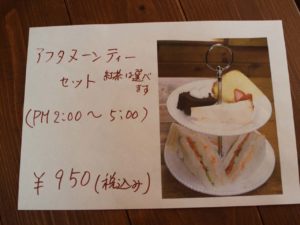 アフタヌーンティー
セット 紅茶は選べ
ます
(PM 2:00～5:00)
¥950(税込み)